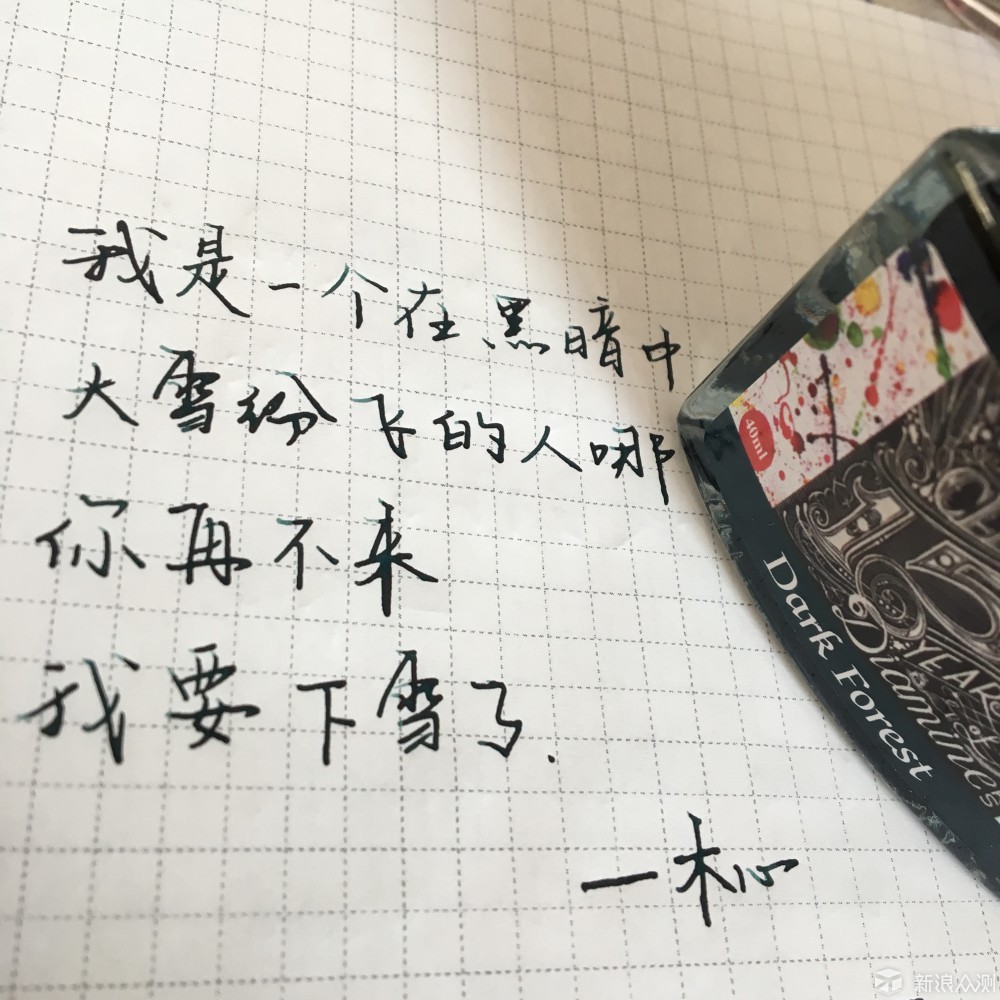 我是一个在黑暗中
大雪纷飞的人哪
你再不来
我要下雪了.
—木心
40ml
Dark Forest
YEARS
of
Diamines
新浪众测